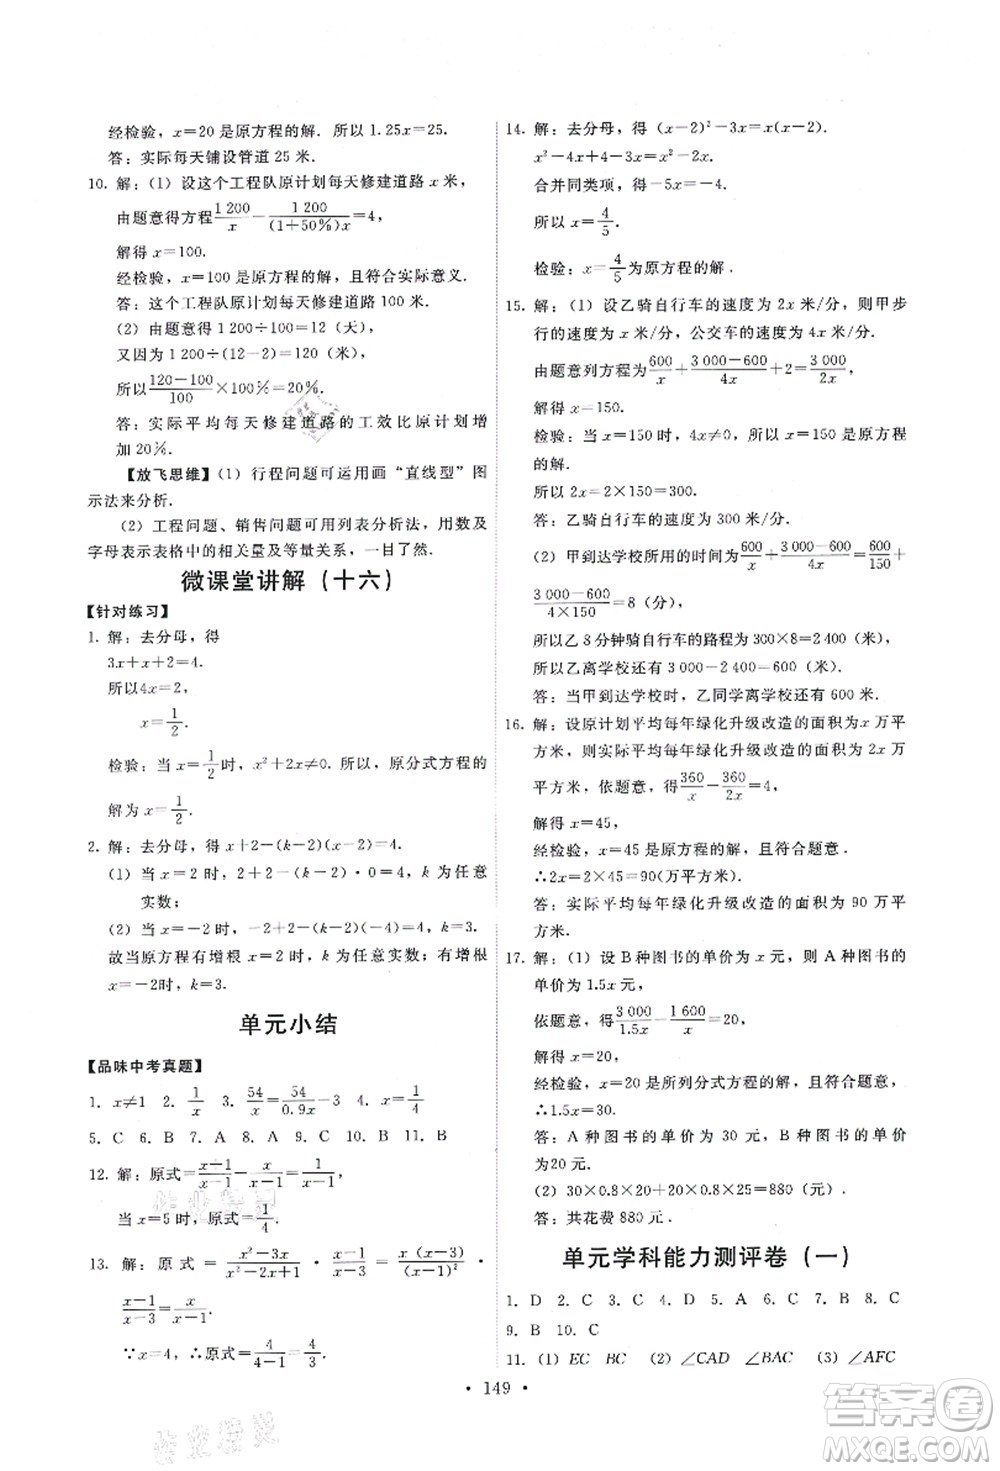 经检验，x=20 是原方程的解．所以 1.25x=25.
答：实际每天铺设管道 25 米．
10. 解：(1) 设这个工程队原计划每天修建道路 x 米，
由题意得方程 1 200/x − 1 200/(1+50%)x =4，
解得 x=100.
经检验，x=100 是原方程的解，且符合实际意义．
答：这个工程队原计划每天修建道路 100 米．
(2) 由题意得 1 200÷100=12（天），
又因为 1 200÷(12−2)=120（米），
所以 120−100/100 ×100%=20%．
答：实际平均每天修建道路的工效比原计划增
加 20%．
【放飞思维】(1) 行程问题可运用画“直线型”图
示法来分析．
(2) 工程问题、销售问题可用列表分析法，用数及
字母表示表格中的相关量及等量关系，一目了然．
微课堂讲解（十六）
【针对练习】
1. 解：去分母，得
3x+x+2=4.
所以4x=2，
x=1/2.
检验：当 x=1/2 时，x²+2x≠0. 所以，原分式方程的
解为 x=1/2.
2. 解：去分母，得 x+2−(k−2)(x−2)=4.
(1) 当 x=2 时，2+2−(k−2)·0=4，k 为任意
实数；
(2) 当 x=−2 时，−2+2−(k−2)(−4)=4，k=3.
故当原方程有增根 x=2时，k为任意实数；有增根
x=−2时，k=3.
单元小结
【品味中考真题】
1. x≠1 2. 1/x 3. 54/x = 54/0.9x −3 4. x=1/4
5. C 6. B 7. A 8. A 9. C 10. B 11. B
12. 解：原式= x−1/x−1 − x/x−1 = 1/x−1，
当 x=5 时，原式=1/4.
13. 解：原式= x²−3x/x²−2x+1 · x−1/x−3 · (x−1)/(x−3)² ·
x−1/x−3 = x/x−1.
∵ x=4，∴ 原式= 4/4−1 = 4/3.
14. 解：去分母，得 (x−2)²−3x=x(x−2).
x²−4x+4−3x=x²−2x.
合并同类项，得−5x=−4.
所以 x=4/5.
检验：x=4/5为原方程的解．
15. 解：(1) 设乙骑自行车的速度为 2x 米/分，则甲步
行的速度为 x 米/分，公交车的速度为 4x 米/分，
由题意列方程为 600/x + 3 000−600/4x +2= 3 000/2x，
解得 x=150.
检验：当 x=150 时，4x≠0，所以 x=150 是原方程
的解．
所以 2x=2×150=300.
答：乙骑自行车的速度为 300 米/分．
(2) 甲到达学校所用的时间为 600/x + 3 000−600/4x = 600/150 +
3 000−600/4×150 =8（分），
所以乙 8 分钟骑自行车的路程为 300×8=2 400（米），
所以乙离学校还有 3 000−2 400=600（米）．
答：当甲到达学校时，乙同学离学校还有 600 米．
16. 解：设原计划平均每年绿化升级改造的面积为 x 万平
方米，则实际平均每年绿化升级改造的面积为 2x 万
平方米，依题意，得 360/x − 360/2x =4，
解得 x=45，
经检验，x=45 是原方程的解，且符合题意，
∴2x=2×45=90(万平方米)．
答：实际平均每年绿化升级改造的面积为 90 万平
方米．
17. 解：(1) 设 B 种图书的单价为 x 元，则 A 种图书的
单价为 1.5x 元，
依题意，得 3 000/1.5x − 1 600/x =20，
解得 x=20，
经检验，x=20 是所列分式方程的解，且符合题意，
∴1.5x=30.
答：A 种图书的单价为 30 元，B 种图书的单价
为20元．
(2) 30×0.8×20+20×0.8×25=880（元）．
答：共花费 880 元．
单元学科能力测评卷（一）
1. D 2. C 3. C 4. D 5. A 6. B 7. B 8. C
9. B 10. C
11. (1) EC BC (2) ∠CAD ∠BAC (3) ∠AFC
• 149 •
答案圈
MXQE.COM
作业精灵